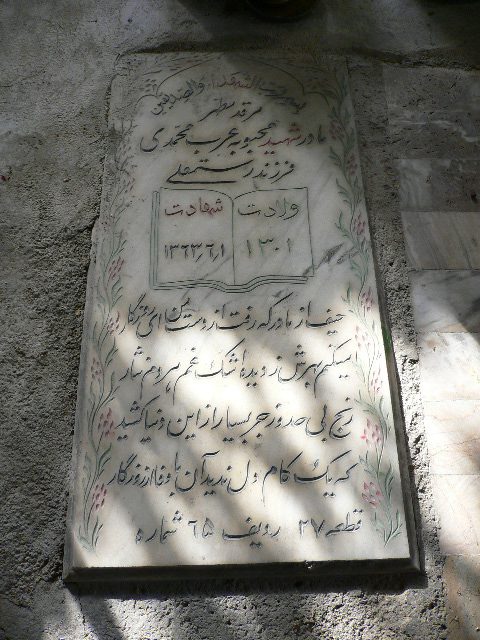 الشهداء والصدیقین
مرقد مطهر
مادر شهید محبوبه عرب محمدی
فرزند رستمعلی
ولادت شهادت
۱۳۰۱ ۱۳۶۳٫۶٫۱
حیف از مادر که رفت از دست
میکنم بهرش ز دیده اشک غم هر دم نثار
رنج بی حد و زجر بسیار از این دنیا کشید
که یک کام دل ندید آن با وفا از روزگار
قطعه ۲۷ ردیف ۶۵ شماره